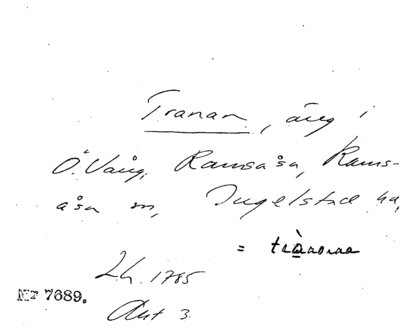 Tranan, äng i
Ö. Vång. Ramsåsa, Rams-
åsa sn, Ingelstad hd,
=
Lh. 1785
Akt 3.
Nr 7689.